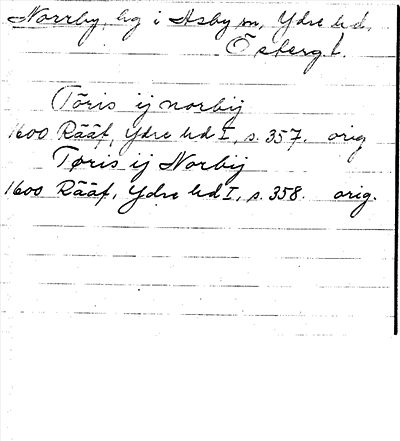 Norrby, hg i Asby sn, Ydre hd,
Östergl.
Töris ij norbij
1600 Rääf, Ydre hd I, s. 357. orig
Tøris ij Norbij
1600 Rääf, Ydre hd I, s. 358. orig.